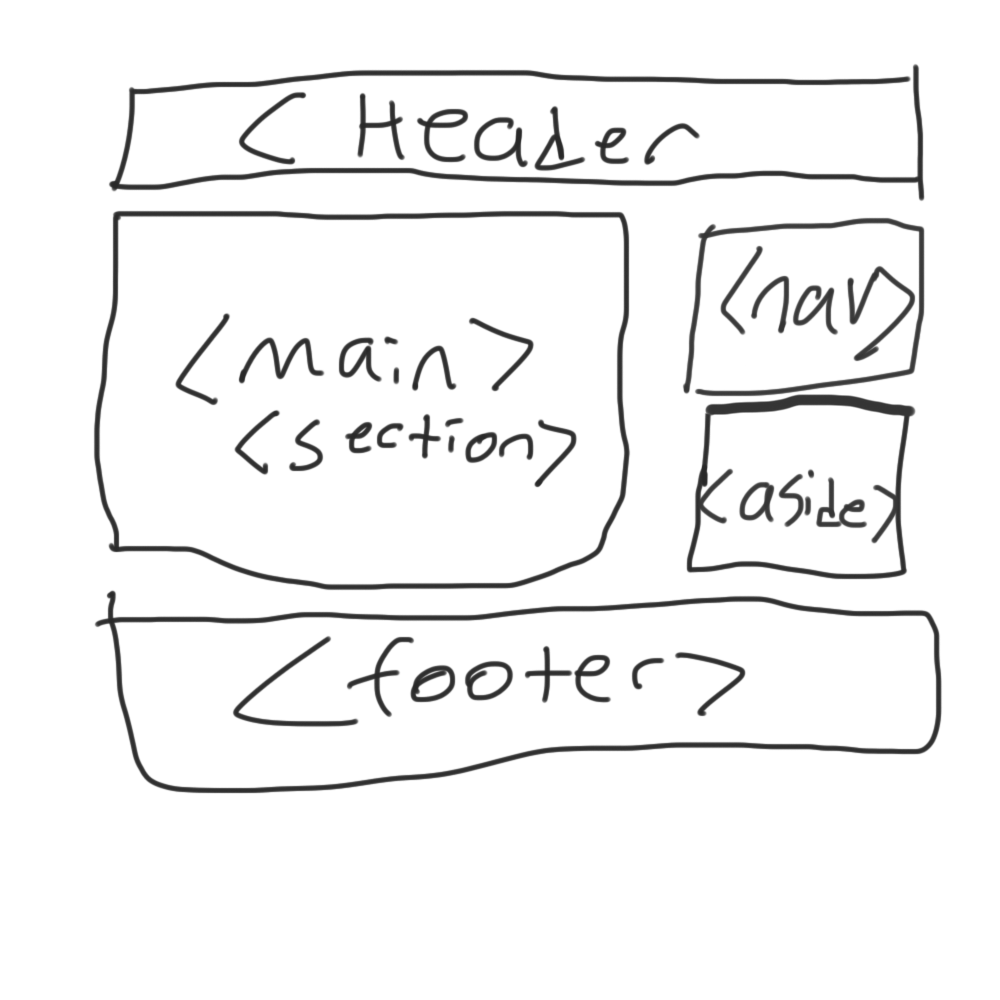 < Header
<main>
<section>
<nav>
<aside>
<footer>